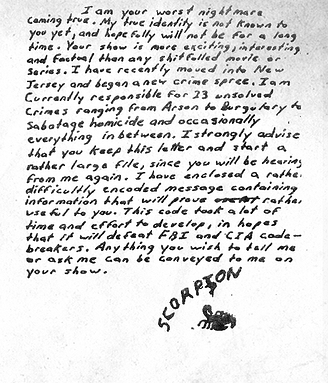 I am your worst nightmare
coming true. My true identity is not known to
you yet, and hopefully will not be for a long
time. Your show is more exciting, interesting
and factual than any shitfolled movie or
Series. I have recently moved into New
Jersey and began a new crime spree. I am
Currently responsible for 13 unsolved
Crimes ranging from Arson to Burgulary to
Sabotage homicide and occasionally
everything in between. I strongly advise
that you keep this letter and start a
rather large file, since you will be hearing
from me again. I have enclosed a rathe
difficultly encoded message containing
information that will prove rathe
useful to you. This code took a lot of
time and effort to develop, in hopes
that it will defeat FBI and CIA code-
breakers. Anything you wish to tell me
or ask me can be conveyed to me on
your show.
SCORPION